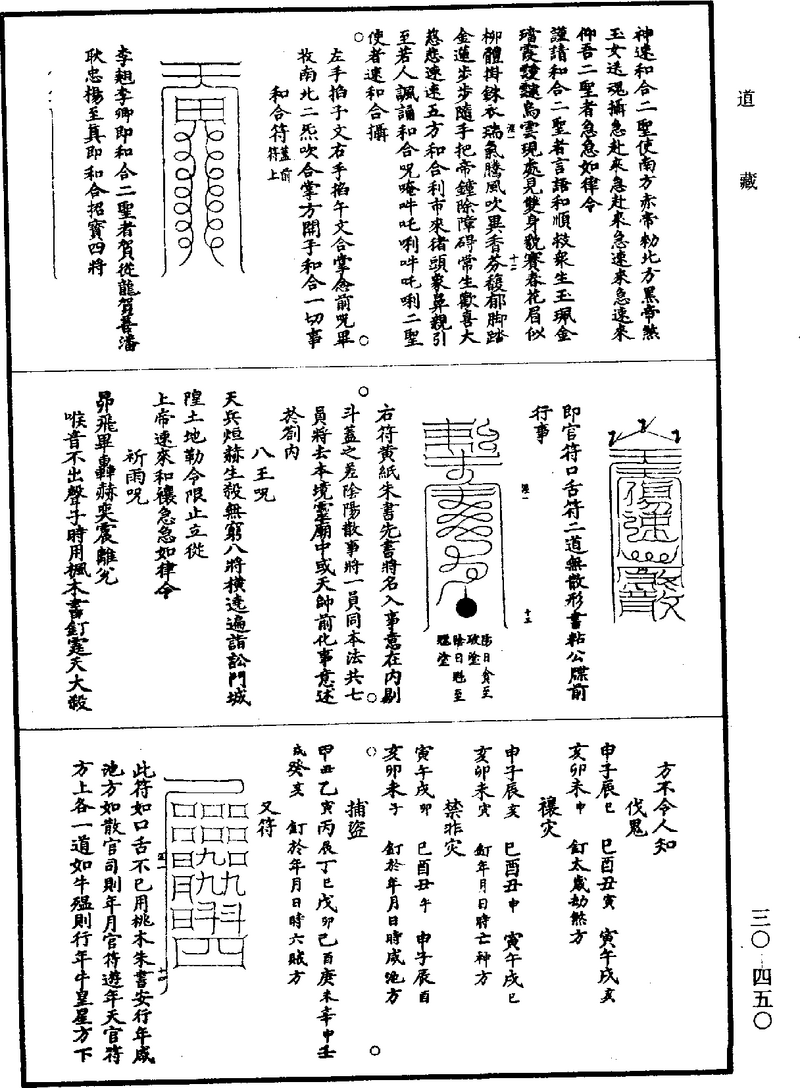 道藏
神速和合二聖使南方赤帝勑北方黑帝煞
玉女送魂攝急赴來急赴來急速來急速來
仰吾二聖者急急如律令
謹請和合二聖者言語和順救衆生玉珮金
璫霞靆靆烏雲現處見雙身貌賽春花眉似
柳體掛銖衣瑞氣騰風吹異香芬馥郁脚踏
金蓮步步隨手把帝鐘除障碍常生歡喜大
慈悲速速五方和合利市來猪頭象鼻親引
至若人諷誦和合呪唵吽吒唎吽吒唎二聖
使者速和合攝
左手掐子文右手掐午文合掌念前呪畢
收南北二炁吹合掌方開手和合一切事
和合符蓋前符上
李翘李卿即和合二聖者賀從龍賀喜潘
耿忠楊至真即和合招寶四將
即官符口舌符二道無散形書粘公牒前
行事
陽日貪至
破塗
陰日魁至
魁塗
右符黄紙朱書先書將名入事意在内剔
斗蓋之差陰陽散事將一員同本法共七
員將去本境靈廟中或天師前化事意述
於劄内
八王呪
天兵烜赫生殺無窮八將橫遶遍詣訟門城
隍土地勒令限止立從
上帝速來和禳急急如律令
祈雨呪
昴飛畢轟赫奕震離兊
喉音不出聲子時用楓木書釘霆天大殺
方不令人知
伐鬼
申子辰巳　巳酉丑寅　寅午戌亥
亥卯未申　釘太歲劫煞方
禳灾
申子辰亥　巳酉丑申　寅午戌巳
亥卯未寅　釘年月日時亡神方
禁非灾
寅午戌卯　巳酉丑午　申子辰酉
亥卯未子　釘於年月日時咸池方
捕盗
甲丑乙寅丙辰丁巳戊卯己酉庚未辛申壬
戌癸亥　釘於年月日時六賊方
又符
此符如口舌不已用桃木朱書安行年咸
池方如散官司則年月官符遊年天官符
方上各一道如牛瘟則行年牛皇星方下
三〇-四五〇